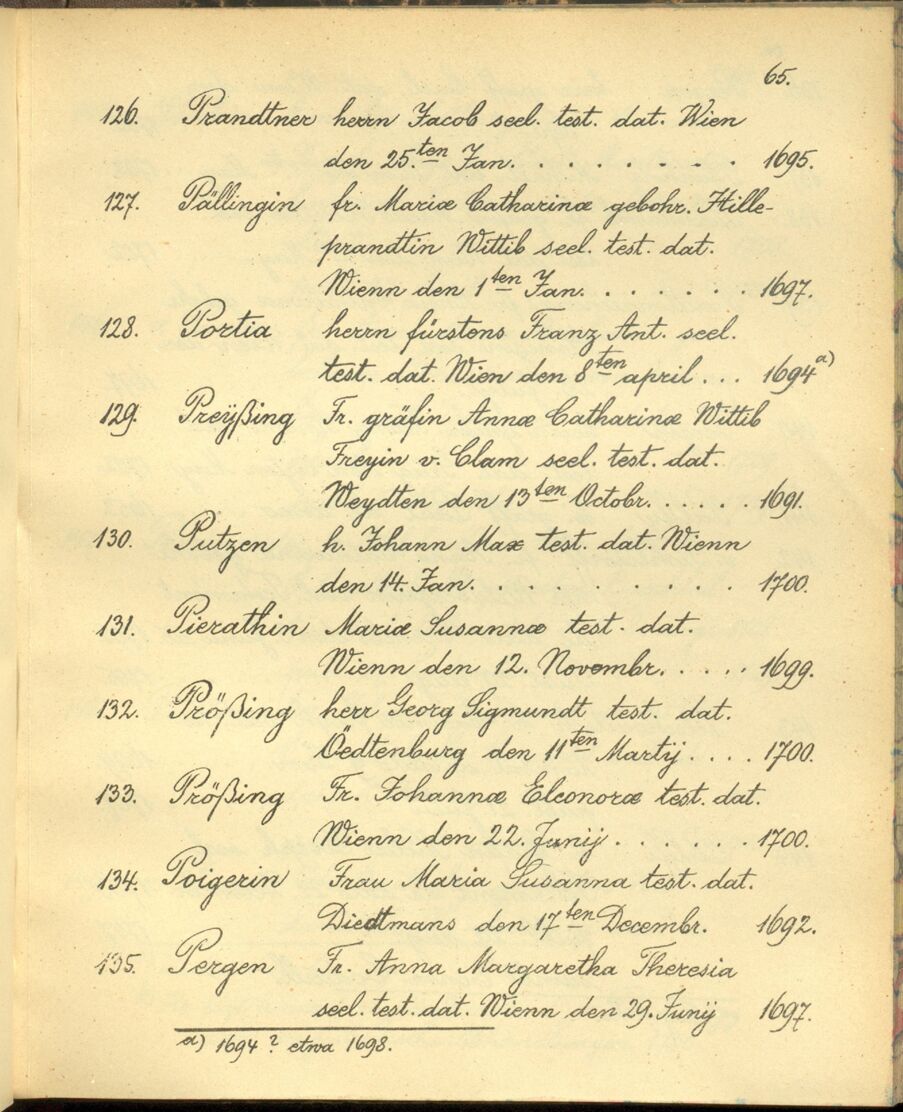 65.
126. Prandtner herrn Jacob seel. test. dat. Wien
den 25.ten Jan. . . . . . . . . 1695.
127. Pällingin fr. Mariæ Catharinæ gebohr. Hille-
prandtin Wittib seel. test. dat.
Wienn den 1ten Jan. . . . . . . 1697.
128. Portia herrn fürstens Franz Ant. seel.
test. dat. Wien den 8ten april . . . 1694 a)
129. Preÿßing Fr. gräfin Annæ Catharinæ Wittib
Freyin v. Clam seel. test. dat.
Weydten den 13ten Octobr. . . . . . 1691.
130. Putzen h. Johann Max test. dat. Wienn
den 14. Jan. . . . . . . . . . . 1700.
131. Pierathin Mariæ Susannæ test. dat.
Wienn den 12. Novembr. . . . . . 1699.
132. Prößing herr Georg Sigmundt test. dat.
Öedtenburg den 11ten Martij . . . . 1700.
133. Prößing Fr. Johannæ Eleonoræ test. dat.
Wienn den 22. Junij . . . . . . 1700.
134. Poigerin Frau Maria Susanna test. dat.
Diedtmans den 17ten Decembr. 1692.
135. Pergen Fr. Anna Margaretha Theresia
seel. test. dat. Wienn den 29. Junij 1697.
a) 1694 ? etwa 1698.